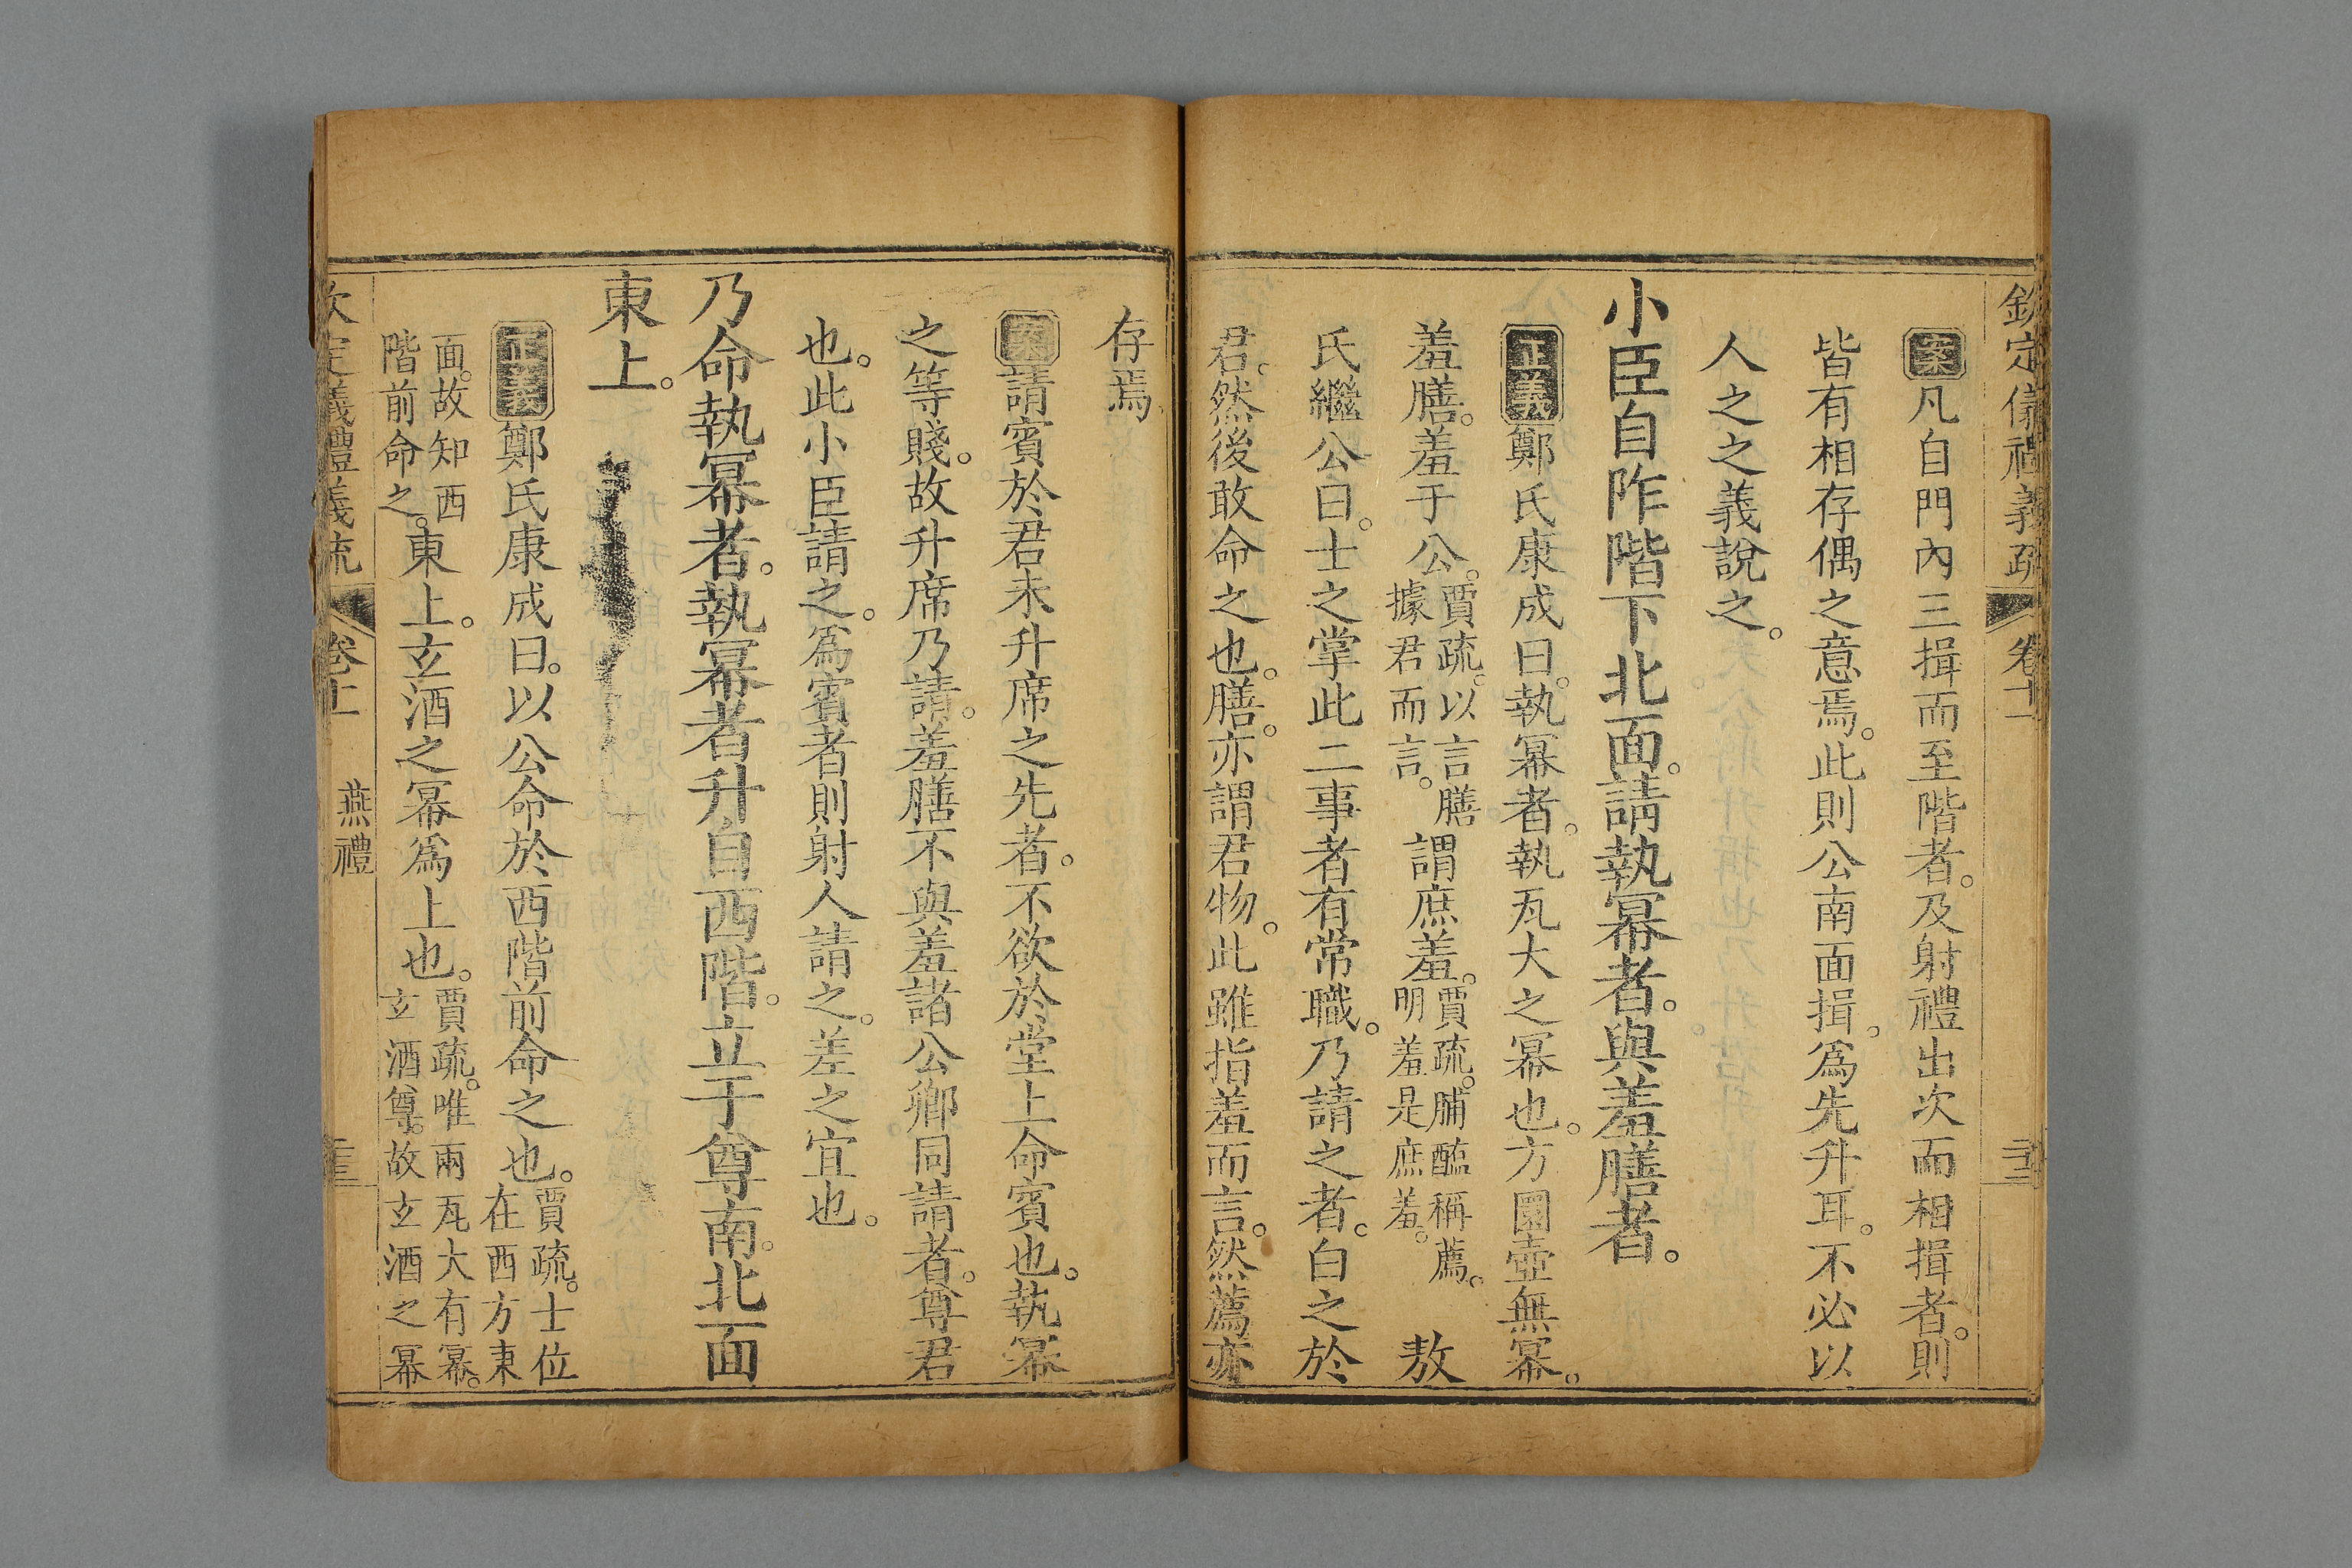 欽定儀禮義疏 卷十一
案凡自門內三揖而至階者。及射禮出次而相揖者。則
皆有相存偶之意焉。此則公南面揖。爲先升耳。不必以
人之之義說之。
小臣自阼階下北面。請執冪者。與羞膳者。
正義鄭氏康成曰。執冪者。執瓦大之冪也。方圜壺無冪。
羞膳。羞于公。賈疏。以言膳
據君而言。謂庶羞。賈疏。脯醢稱薦。
明羞是庶羞。敖
氏繼公曰。士之掌此二事者有常職。乃請之者。白之於
君。然後敢命之也。膳。亦謂君物。此雖指羞而言。然薦亦
存焉
案請賓於君未升席之先者。不欲於堂上命賓也。執冪
之等賤。故升席乃請。羞膳不與羞諸公卿同請者。尊君
也。此小臣請之。爲賓者則射人請之。差之宜也。
乃命執冪者。執冪者升自西階。立于尊南。北面
東上。
正義鄭氏康成曰。以公命於西階前命之也。賈疏。士位
在西方東
面。故知西
階前命之。東上。玄酒之冪爲上也。賈疏。唯兩瓦大有冪。
玄酒尊。故玄酒之冪
欽定義禮義疏 卷十一 燕禮